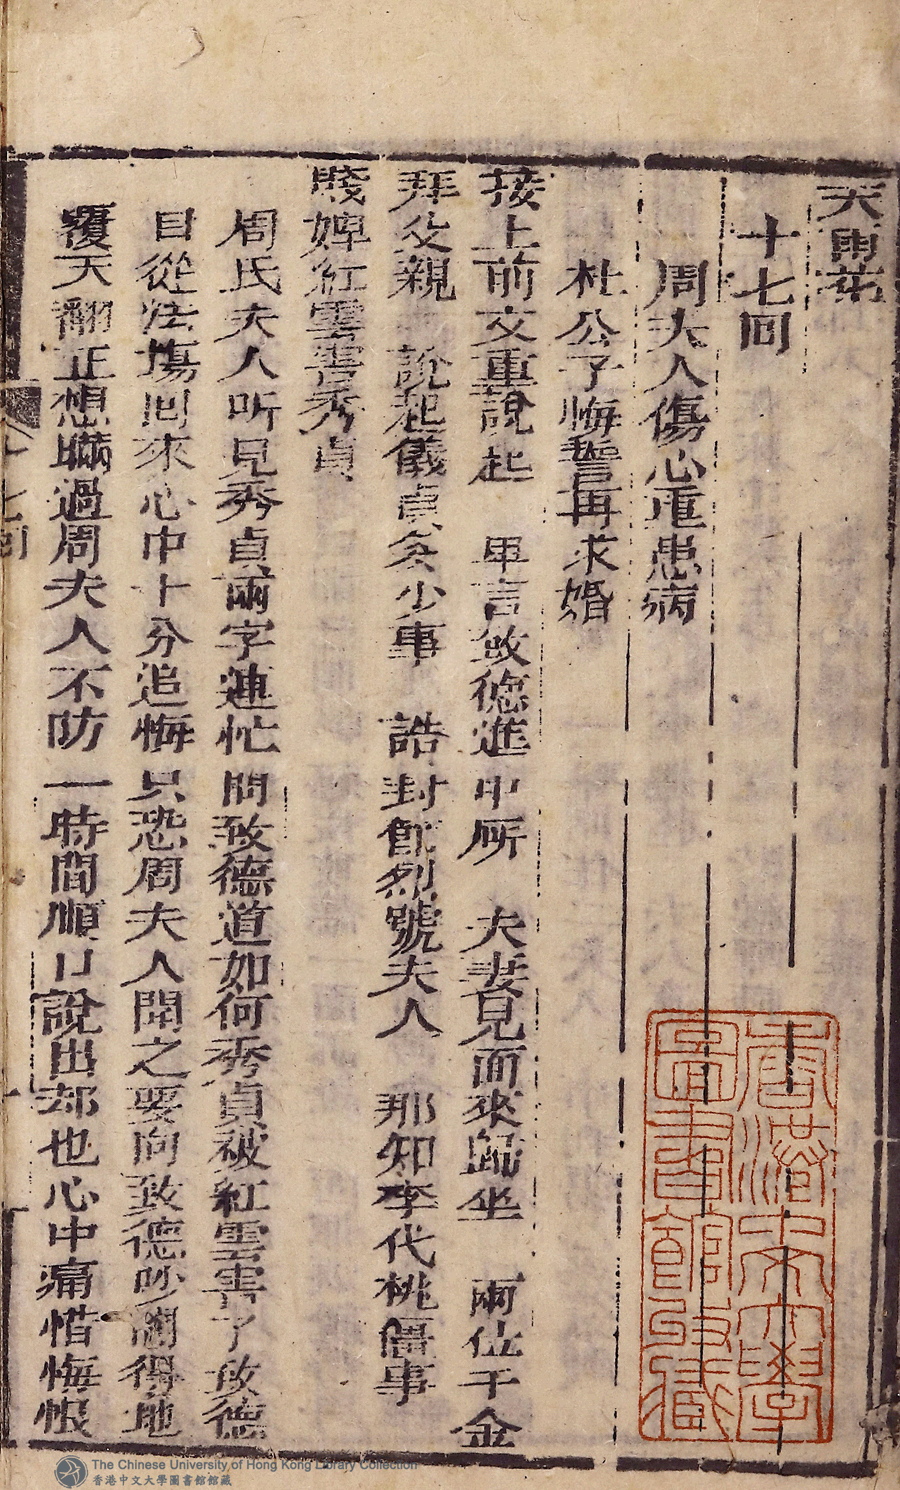 天雨花
十七回
周夫人傷心重患病
杜公子悔誓再求婚
接上前文重說起 單言致德進中所 夫妻見面來歸坐 兩位千金
拜父親 說起儀貞多少事 誥封節烈號夫人 那知李代桃僵事
賤婢紅雲害秀貞
周氏夫人听見秀貞兩字連忙問致德道如何秀貞被紅雲害了致德
自從法塲回來心中十分追悔只恐周夫人聞之要向致德吵鬧得地
覆天翻正想瞞過周夫人不防一時間順口說出却也心中痛惜悔恨
十七回
香港中文大學
圖書館藏
The Chinese University of Hong Kong Library Collection
香港中文大學圖書館館藏